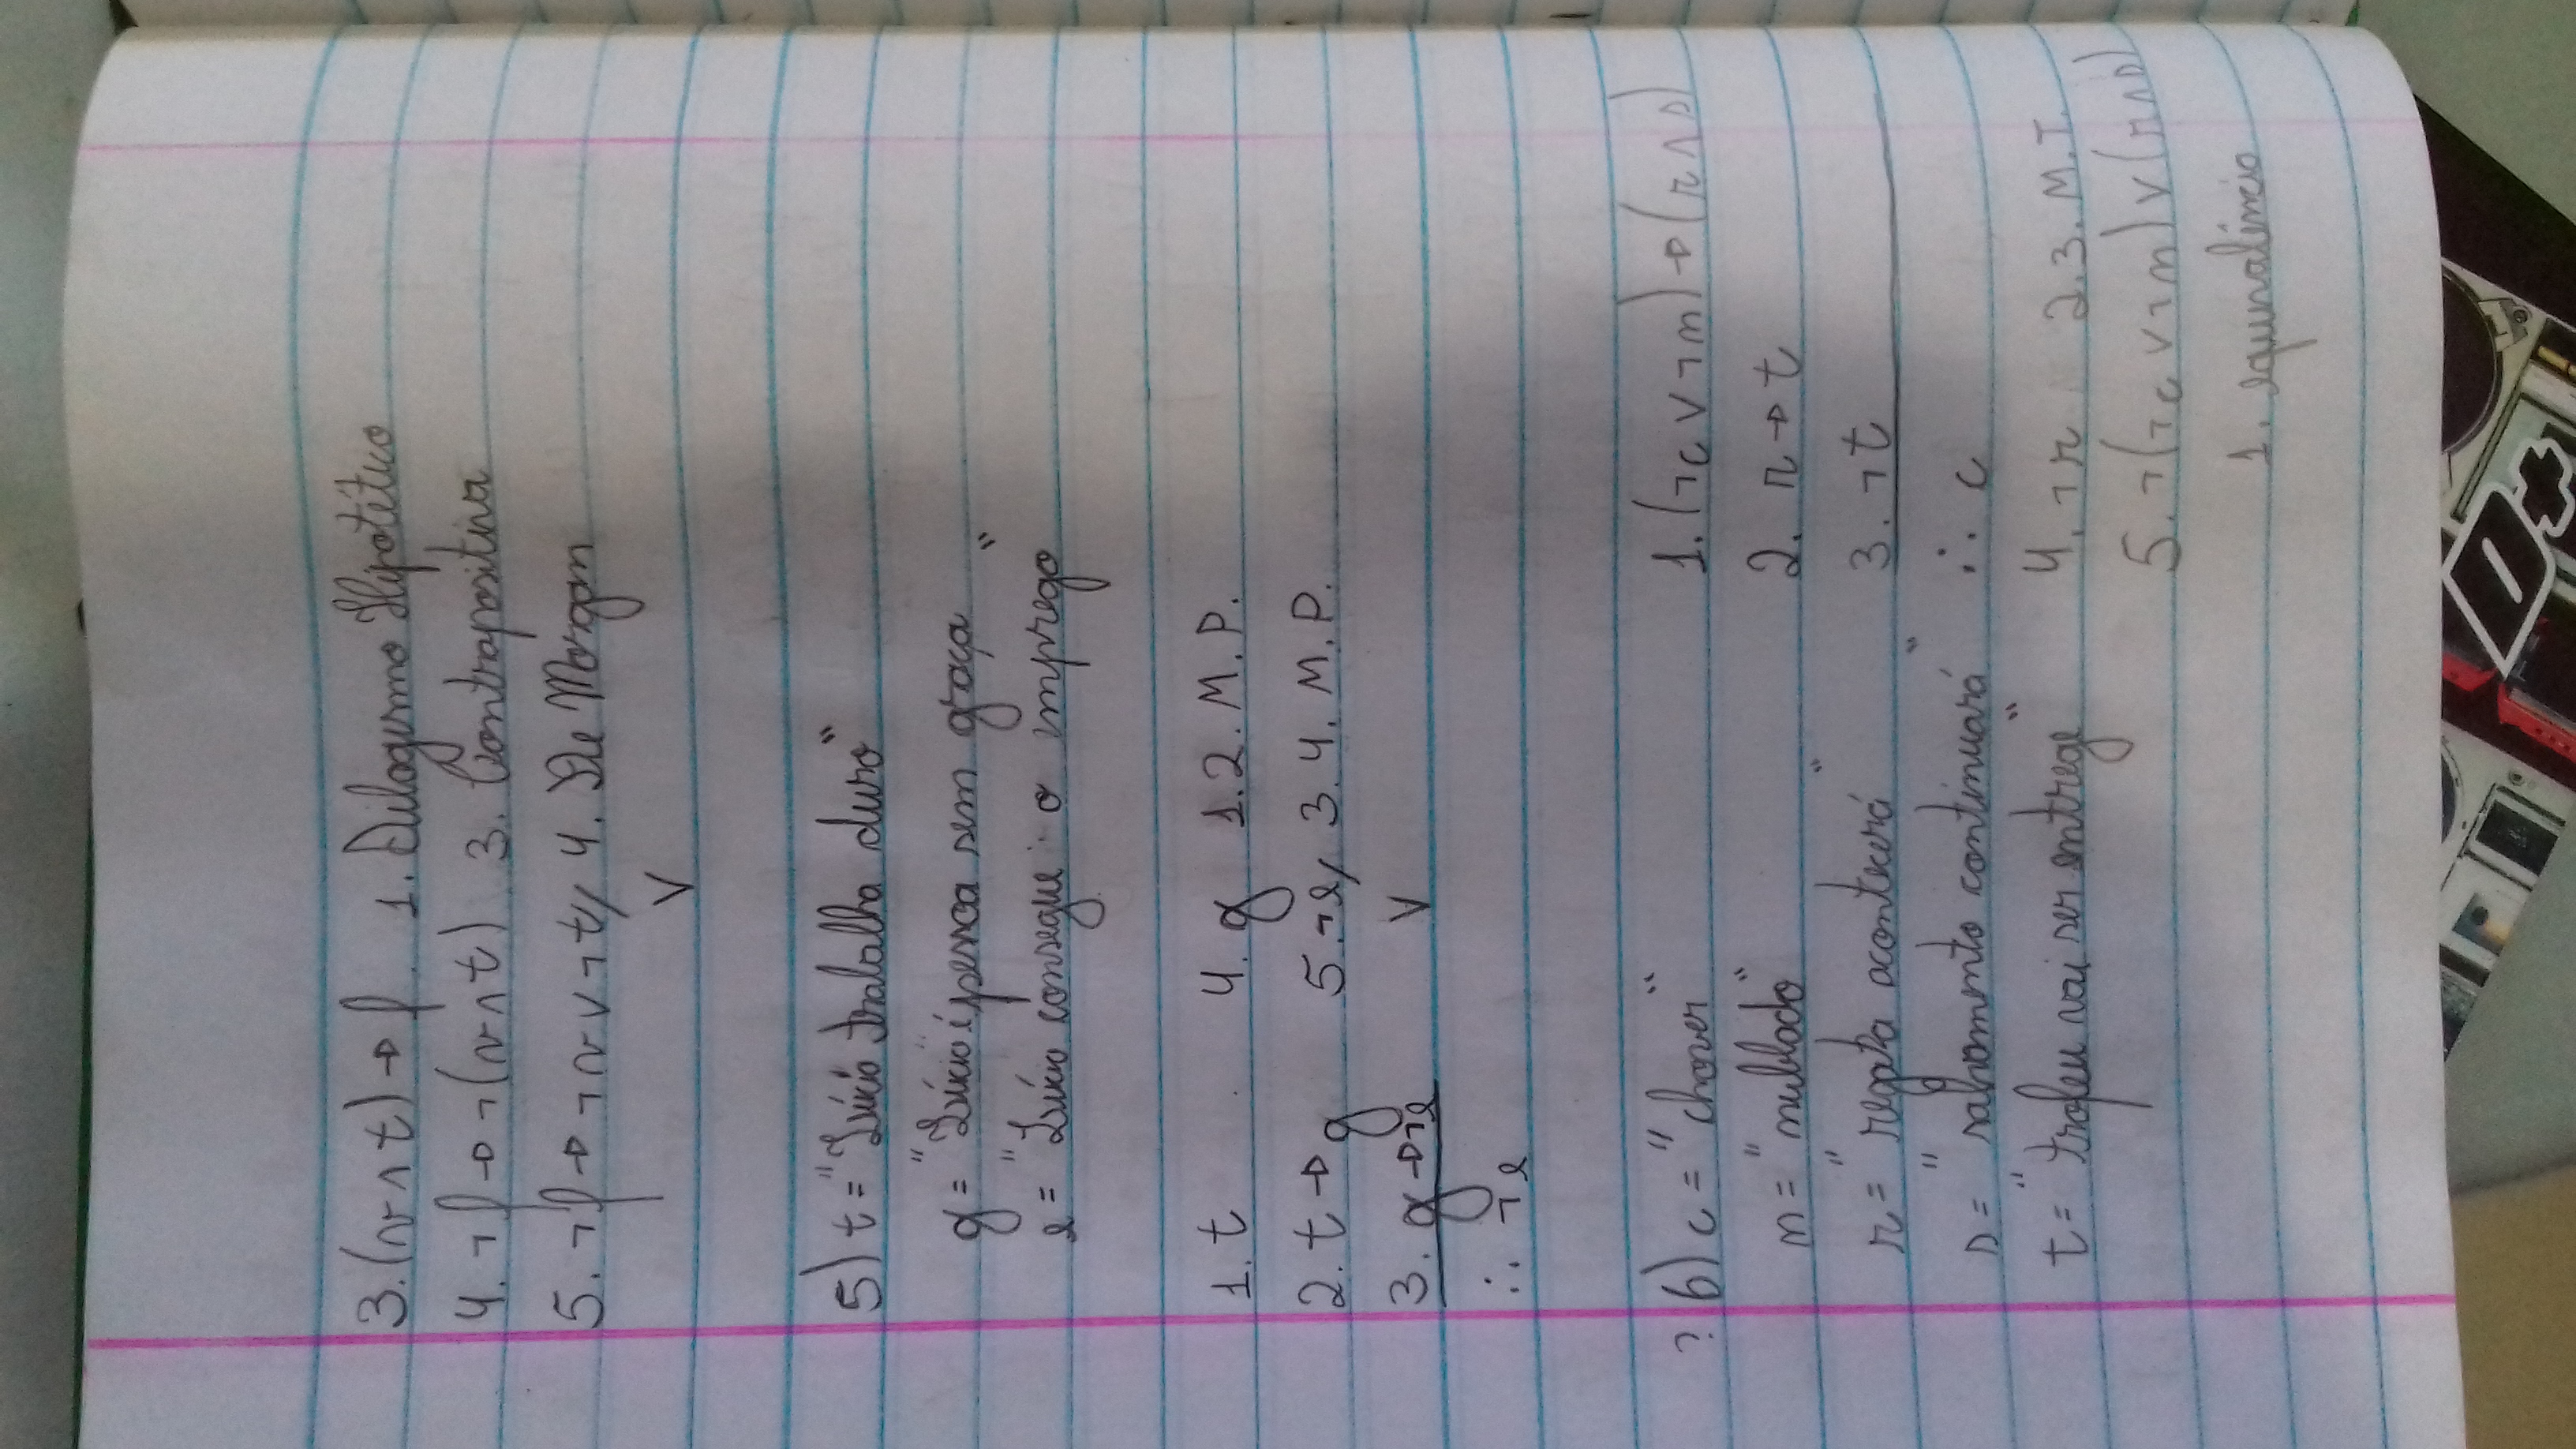 3. (r ∧ t) → f. 1. Silogismo Hipotético
4. ¬f → ¬(r ∧ t) 3. Contrapositiva
5. ¬f → ¬r ∨ ¬t, 4. De Morgan
V
5) t = "Lúcio trabalha duro"
g = "Lúcio" é pessoa sem graça
e = "Lúcio consegue o emprego"
1. t 4. g 1.2. M.P.
2. t → g 5. ¬e, 3.4. M.P.
3. g → ¬e V
∴ ¬e
? 6) c = "chover" 1. (¬c ∨ ¬n) → (r ∧ s)
n = "nublado" 2. r → t
r = "regata acontecerá" 3. ¬t
s = "salvamento continuará" ∴ c
t = "trofeu vai ser entrege" 4. ¬r 2.3. M.T.
5. ¬(¬c ∨ ¬n) ∨ (r ∧ s)
1. equivalência
D+